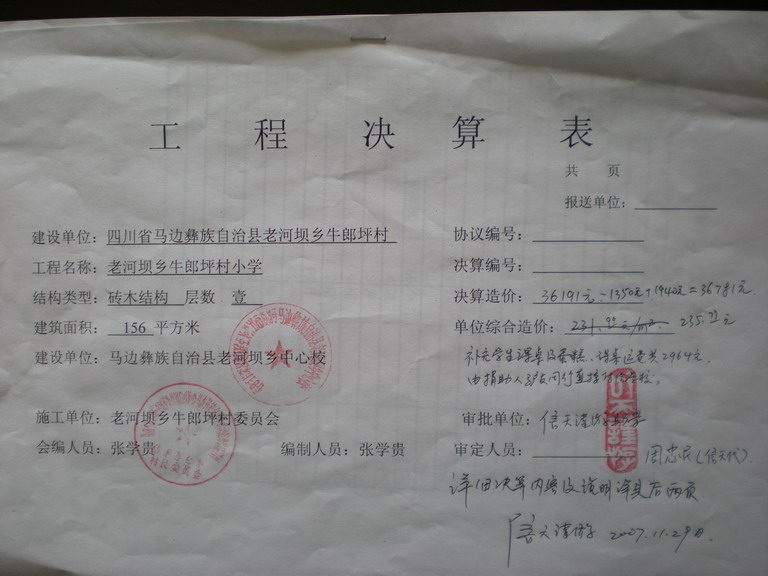 工程决算表
共 页
报送单位：
建设单位：四川省马边彝族自治县老河坝乡牛郎坪村
协议编号：
工程名称：老河坝乡牛郎坪村小学
决算编号：
结构类型：砖木结构 层数 壹
决算造价：36191元-1350元+1940元=36781元
建筑面积：156 平方米
单位综合造价：235.77元
建设单位：马边彝族自治县老河坝乡中心校
补充学生课桌及
课桌运费共2964元
由捐助人
施工单位：老河坝乡牛郎坪村委员会
审批单位：信天谨游
会编人员：张学贵
编制人员：张学贵
审定人员：
周忠民（信天代）
详细决算内容及说明详见后两页
信天谨游 2007.11.29日